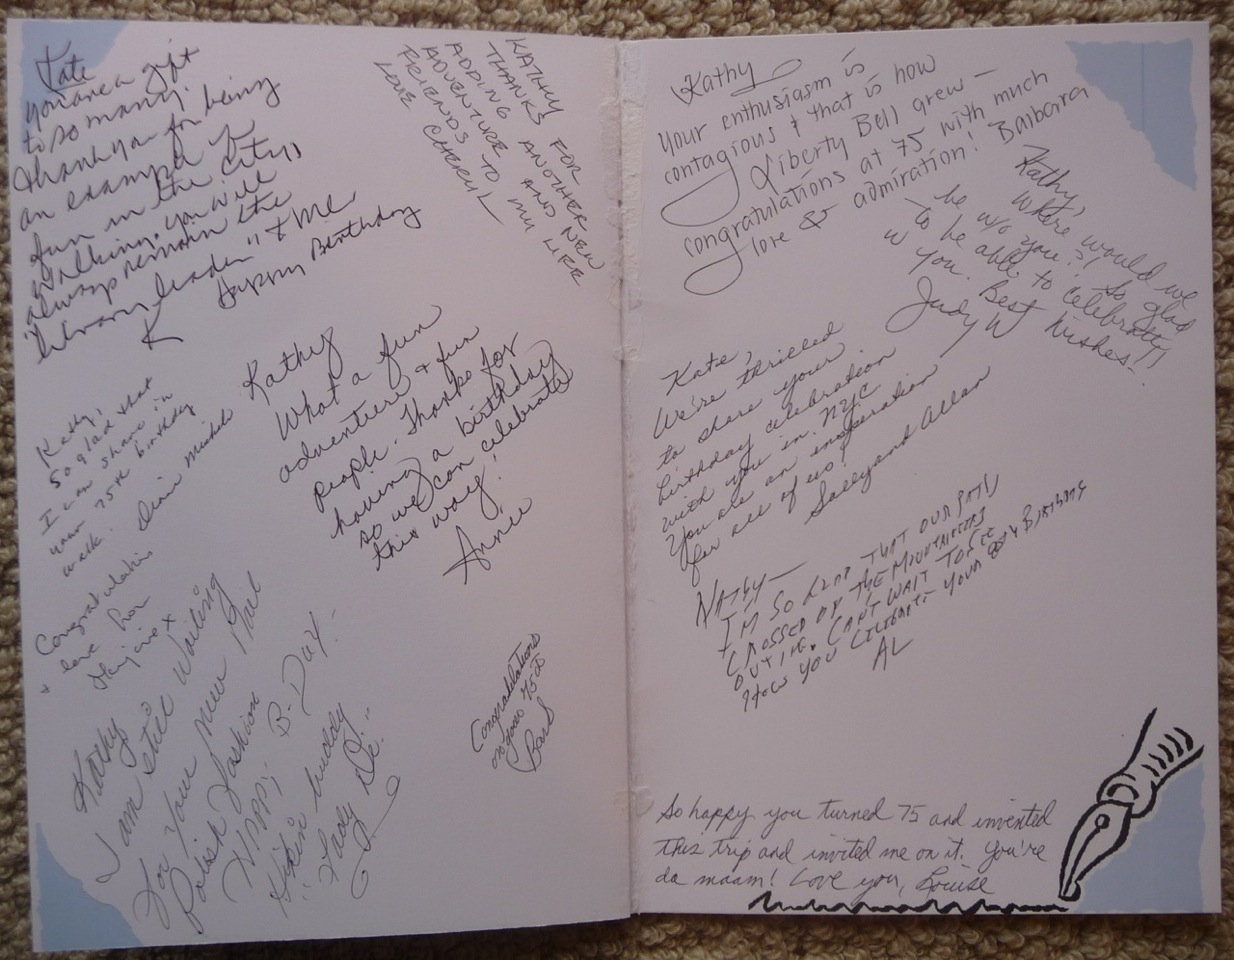 Kate
you are a gift
to so many.
thank you for being
an example of
fun in the city,
walking. you will
always remain the
"library leader" & me
K Happy Birthday
KATHY
THANKS FOR
ADDING ANOTHER
ADVENTURE AND NEW
FRIENDS TO MY LIFE
LOVE CHERYL
Kathy,
So glad that
I can share in
your 75th birthday
walk.
Kathy
What a fun
adventure & fun
people. Thanks for
having a birthday
so we can celebrate
this way!
Annie
Congratulations
& love from
Marjorie x
Kathy
I am still waiting
for your new Nail
Polish fashion
Happy B-Day.
Hikin' buddy
"Lady Di."
Congratulations
on your 75th
Barb
Kathy
Your enthusiasm is
contagious & that is how
Liberty Bell grew -
congratulations at 75 with much
love & admiration! Barbara
Kathy,
Where would we
be w/o you? So glad
to be able to celebrate
w you. Best Wishes!
Judy W
Kate,
We're thrilled
to share your
birthday celebration
with you in NYC
You are an inspiration
for all of us!
Sally and Allan
Kathy-
I'M SO GLAD THAT OUR PATH
CROSSED BY THE MOUNTAINEERS
OUTING. CAN'T WAIT TO SEE
HOW YOU CELEBRATE YOUR 80th BIRTHDAY
AL
So happy you turned 75 and invented
this trip and invited me on it. You're
da maam! Love you, Louise